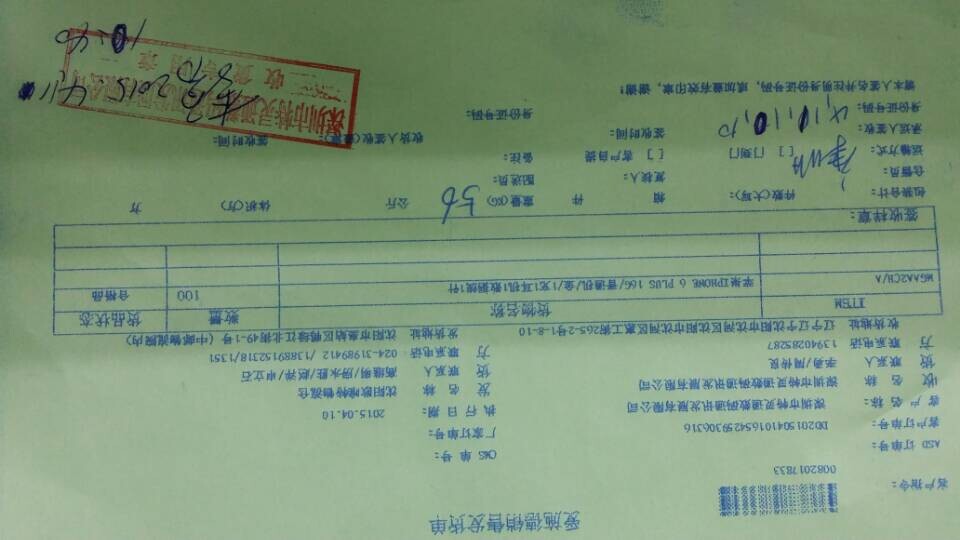 爱施德销售发货单
客户指令：
0082017833
ASD 订单号：
CMS 单 号：
客户订单号： DD20150410165425９306316
厂家订单号：
客 户 名 称： 深圳市特灵通数码通讯发展有限公司
执 行 日 期： 2015.04.10
收 名 称 深圳市特灵通数码通讯发展有限公司
发 名 称 沈阳酷动特物流仓
货 联系人 李勇/周传良
货 联系人
方 联系电话 13940285287
方 联系电话 024-93189412 /13889152318/1351
收货地址 辽宁辽宁沈阳市沈河区沈阳市沈河区惠工街265-2号1-8-10
发货地址 沈阳市皇姑区鸭绿江北街49-1号（中邮物流院内）
ITTEM 货物名称 数量 货品状态
MGAA2CH/A 苹果IPHONE 6 PLUS 16G/普通机/金/1充1耳机1数据线1针 100 合格品
签收样章：
包装合计： 件数(大写)： 箱 件 重量(KG) 56 公斤 体积(方) 方
仓管员 复核人： 配送员：
运输方式： [ ] 门到门 [ ] 客户自提 备注：
承运人签收： 签收时间： 收货人签收(盖章)： 签收时间：
身份证号码： 身份证号码：
请本人签名并注明身份证号码，或加盖有效印章，谢谢！
4.10.10.10
深圳市特灵通数码通讯发展有限公司
收货专用章
2015 4/11
10:40